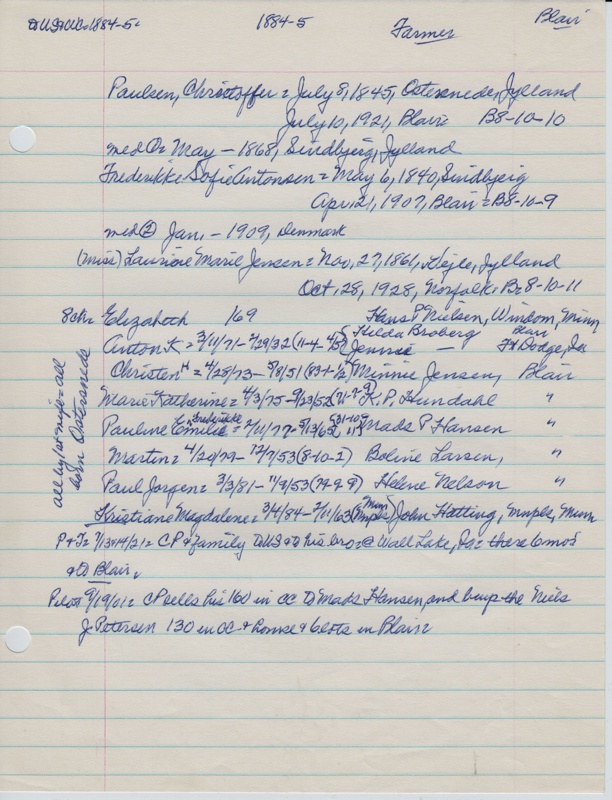 1884-5 1884-5 Farmer Blair
Paulsen, Christoffer = July 8, 1845, Ostersnede, Jylland
July 10, 1921, Blair B8-10-10
med ① = May - 1868, Sindbjerg, Jylland
Frederikke Sofie Antonsen = May 6, 1840, Sindbjerg
Apr. 21, 1907, Blair = B8-10-9
med ② Jan. - 1909, Denmark
(miss) Laurine Marie Jensen = Nov. 27, 1861, Hejls, Jylland
Oct. 28, 1928, Norfolk = B = 8-10-11
8 ch = Elizabeth 169 Hans P Nielsen, Windom, Minn
Anton K = 3/11/71 - 2/29/32 (11-4 Hilda Broberg Blair
Jennie — Ft Dodge, Ia
Christen H = 4/28/73 - 5/8/51 (83+ Minnie Jensen, Blair
Marie Katherine = 4/3/75 - 9/23/52 K. P. Hundahl "
Pauline Emilie Frederikke = 2/11/77 - 5/13/65 Mads P Hansen "
Martin = 4/20/79 - 12/7/53 (8-10-2) Boline Larsen, "
Paul Jorgen = 3/3/81 - 11/9/53 (79-9-8) Helene Nelson "
Kristiane Magdalene = 3/4/84 - 2/11/63 (Mnpls Minn) John Hatting, Mnpls, Minn
all by 1st mif = all
born Ostersnede
P & T = 7/13 & 14/21 = CP & family to US & to his bro = @ Wall Lake, Ia = there 6 mos
& to Blair.
Pilot 9/19/01 = CP sells his 160 in CC to Mads Hansen and buys the Niels
J Petersen 130 in CC & house & 6 lots in Blair